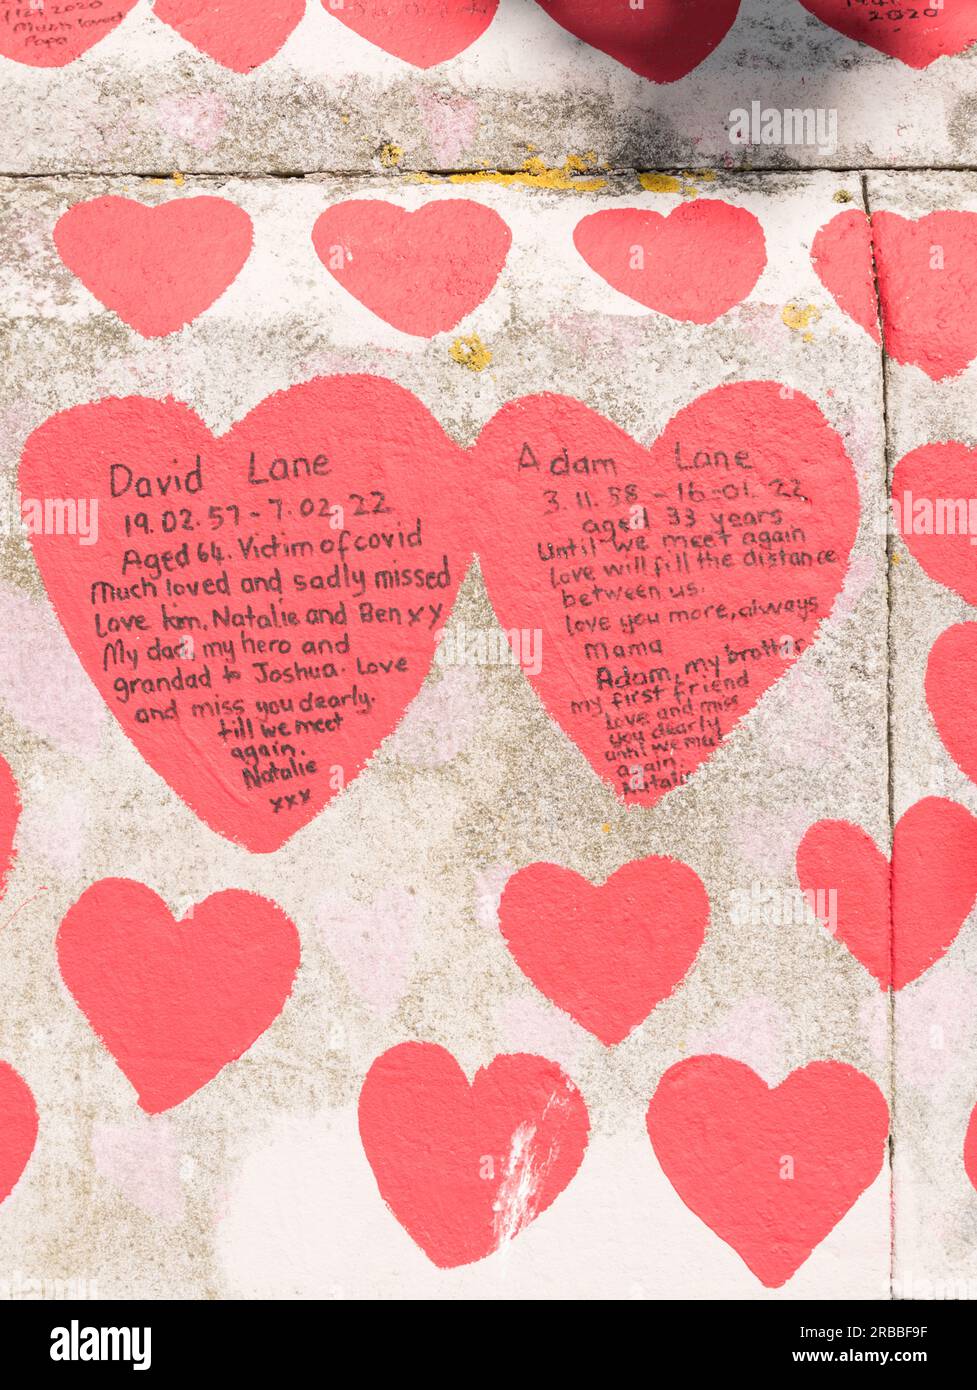 2020
Much loved
Papa
2020
David Lane
19.02.57-7.02.22
Aged 64. Victim of covid
Much loved and sadly missed
Love Kim, Natalie and Ben xy
My dad, my hero and
grandad to Joshua. Love
and miss you dearly.
till we meet
again.
Natalie
xxx
Adam Lane
3.11.88-16-01.22
aged 33 years
Until we meet again
love will fill the distance
between us.
love you more, always
Mama
Adam, my brother
my first friend
love and miss
you dearly
until we meet
again.
Natalie
alamy
alamy
Image ID: 2RBBF9F
www.alamy.com